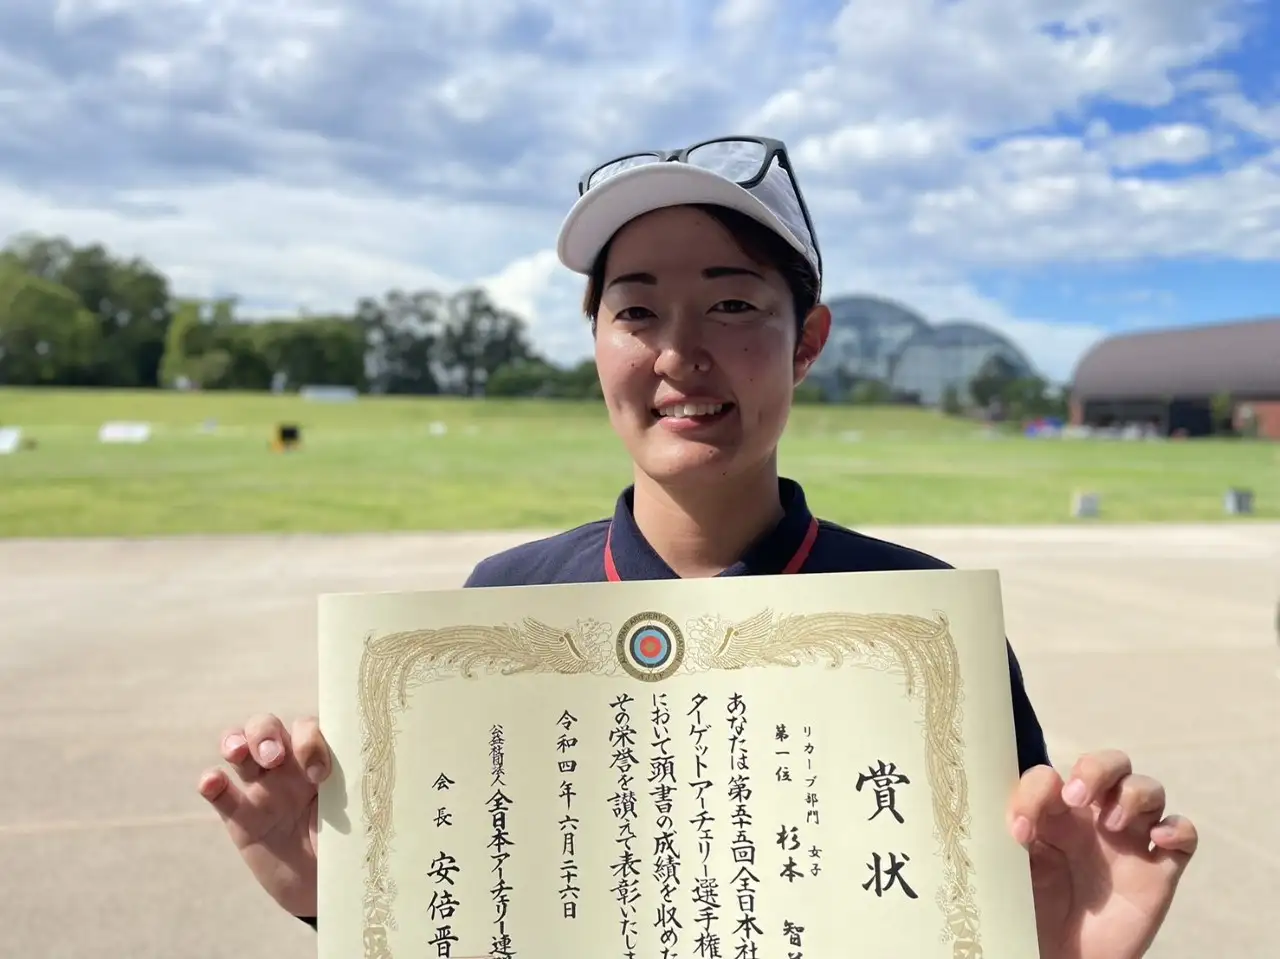 賞状
リカーブ部門 女子
第一位 杉本 智
あなたは第五十五回全日本社
ターゲットアーチェリー選手権
において頭書の成績を収めた
その栄誉を讃えて表彰いたしま
令和四年六月二十六日
公益社団法人 全日本アーチェリー連
会長 安倍晋